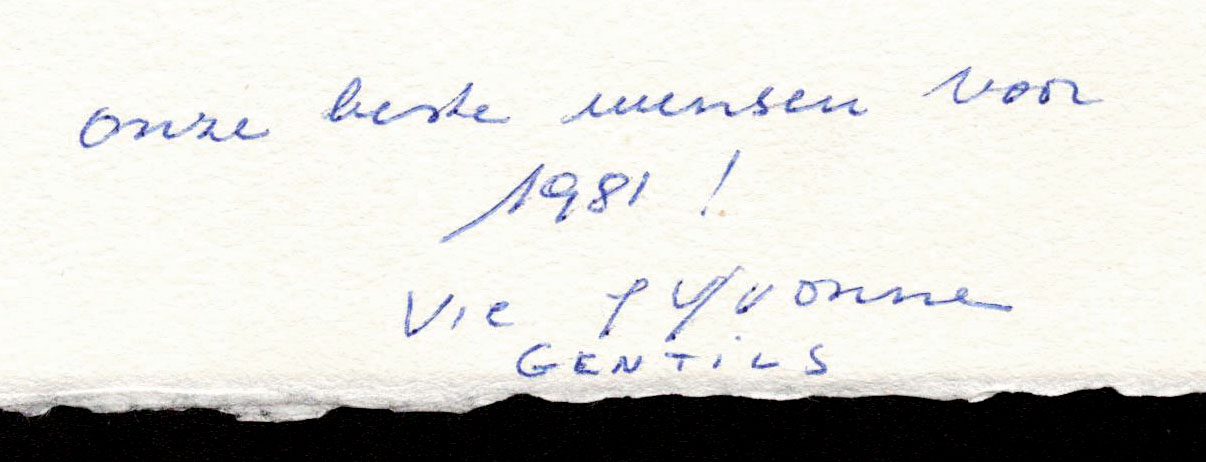 onze beste wensen voor
1981 !
Vic & Yvonne
GENTILS